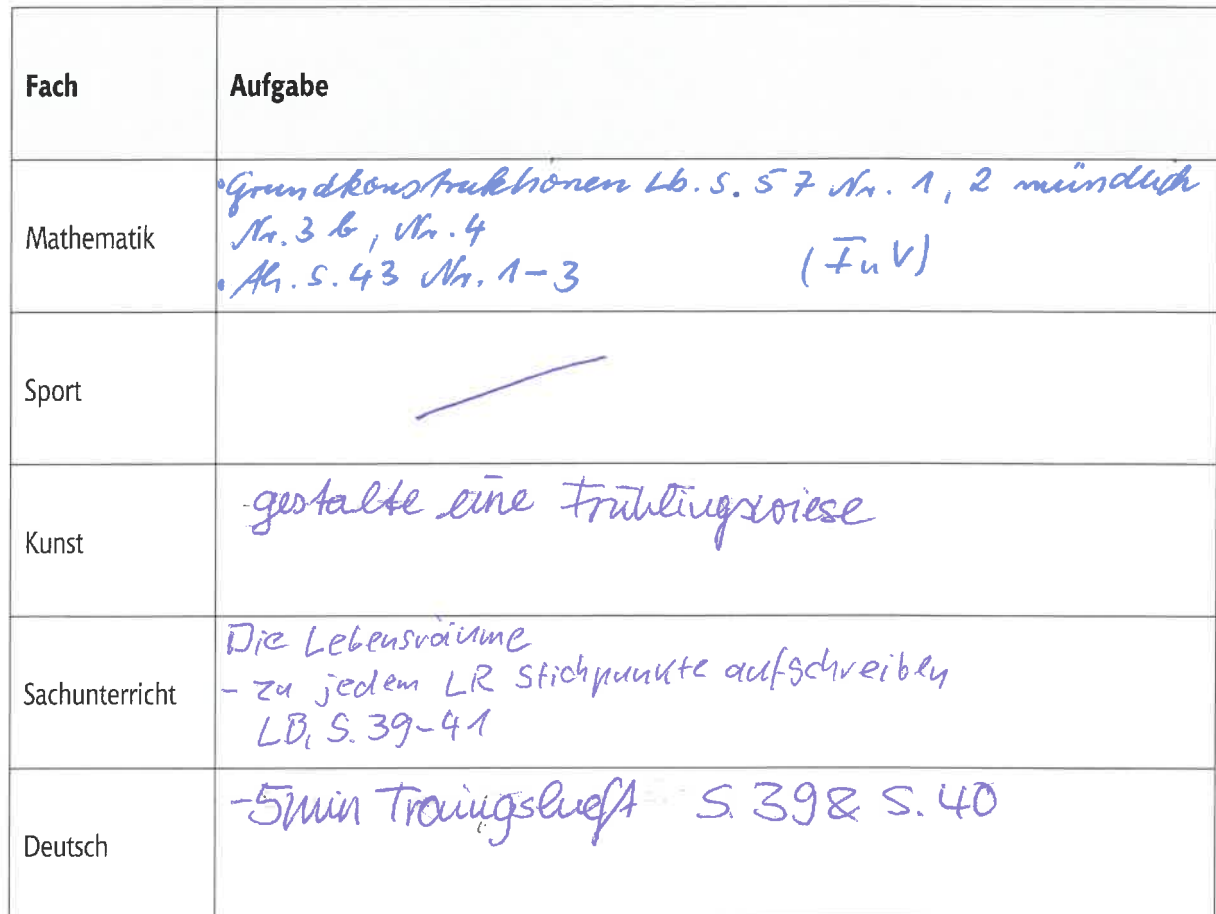 Fach Aufgabe
Mathematik
• Grundkonstruktionen Lb. S. 57 Nr. 1, 2 mündlich
Nr. 3 b, Nr. 4
• Ah. S. 43 Nr. 1-3 (FuV)
Sport
Kunst
- gestalte eine Frühlingswiese
Sachunterricht
Die Lebensräume
- zu jedem LR Stichpunkte aufschreiben
LB, S. 39-41
Deutsch
- 5min Traingsheft S. 39 & S. 40